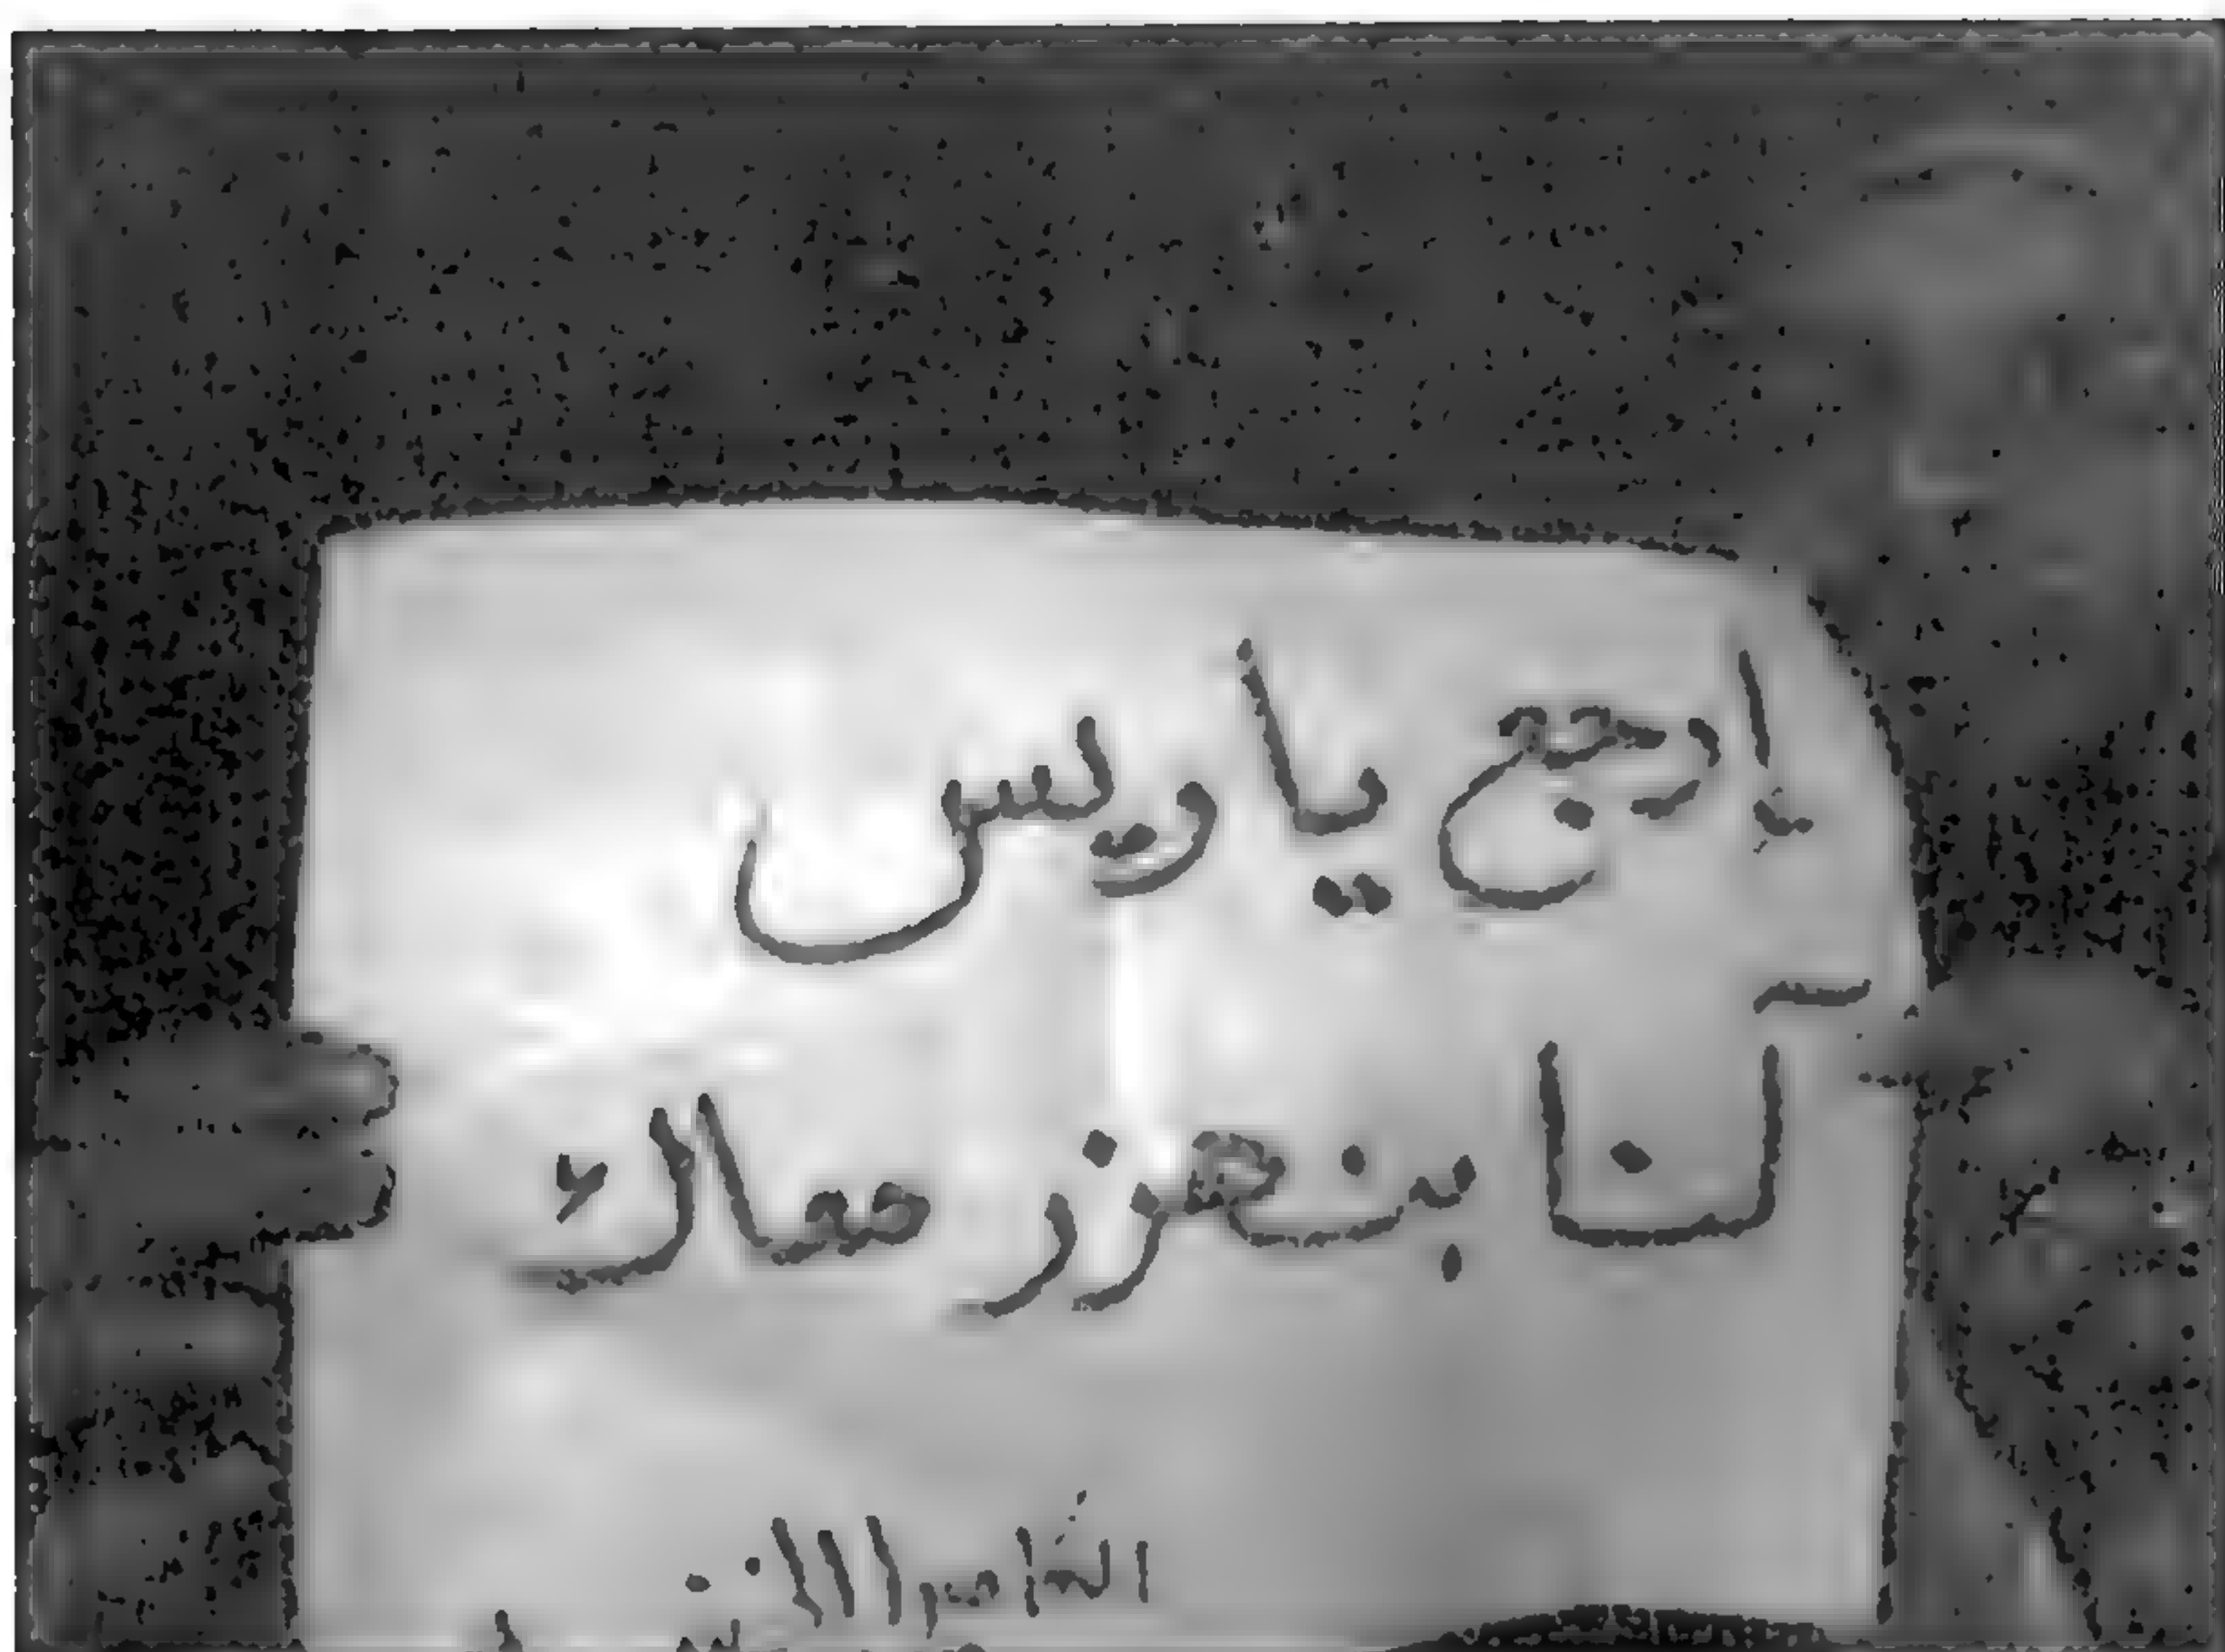 إرجع ياريس
كنا بنهزر معاك